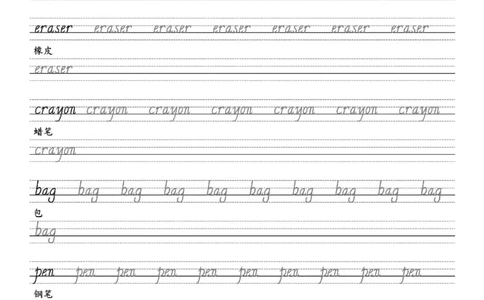 eraser eraser eraser eraser eraser eraser eraser
橡皮
eraser
crayon crayon crayon crayon crayon crayon crayon
蜡笔
crayon
bag bag bag bag bag bag bag bag bag bag
包
bag
pen pen pen pen pen pen pen pen pen pen
钢笔